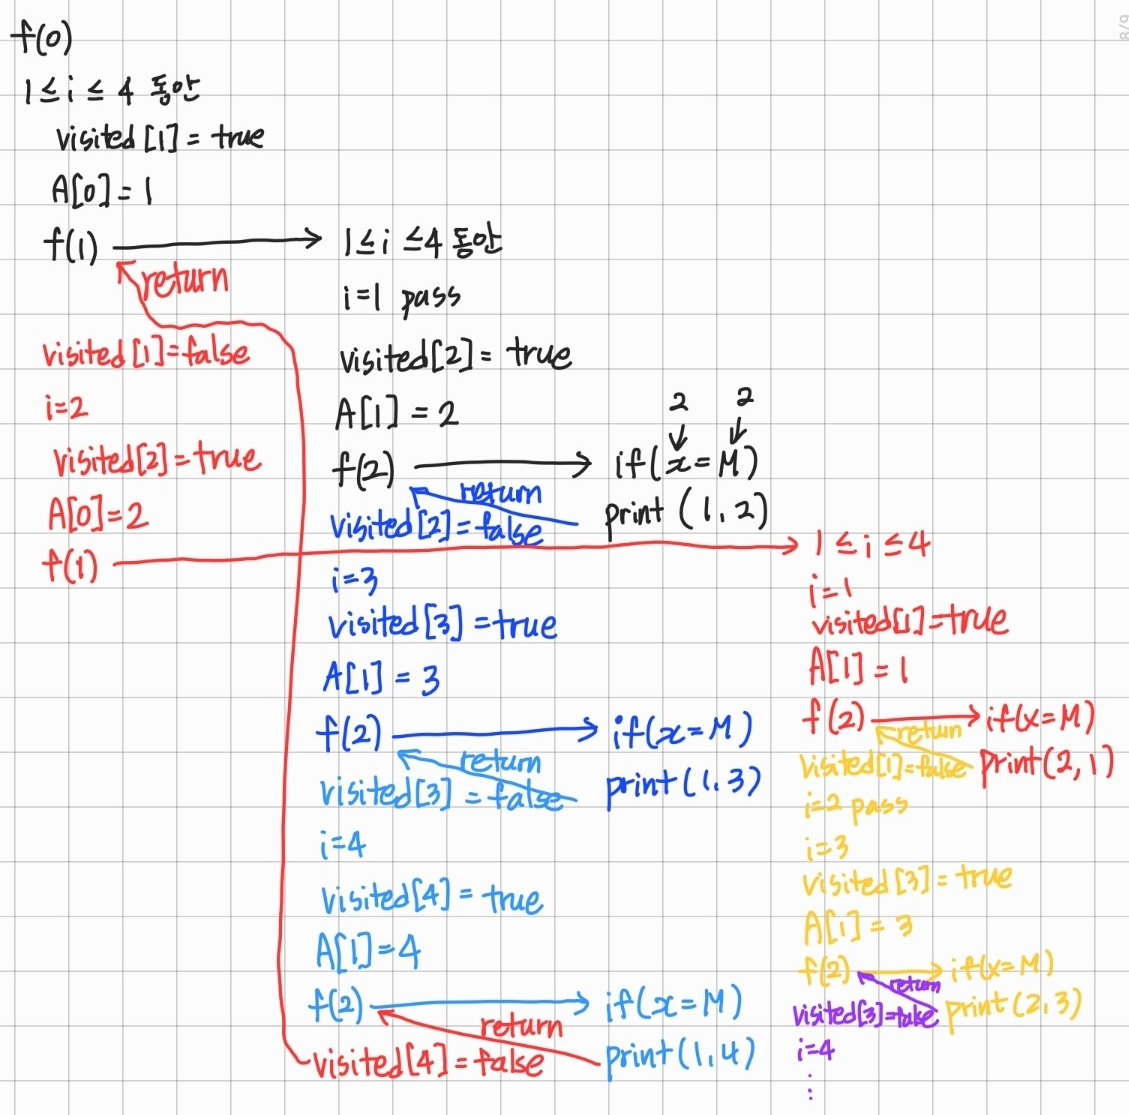 6/8
f(0)
1 ≤ i ≤ 4 동안
visited[1] = true
A[0] = 1
f(1)
return
visited[1]=false
i=2
visited[2]=true
A[0]=2
f(1)
1 ≤ i ≤ 4 동안
i=1 pass
visited[2] = true
A[1] = 2
f(2)
return
visited[2]=false
2 2
if(x=M)
print (1, 2)
i=3
visited[3] = true
A[1] = 3
f(2)
return
visited[3] = false
if(x=M)
print(1, 3)
i=4
visited[4] = true
A[1]=4
f(2)
return
visited[4] = false
if(x=M)
print(1, 4)
1 ≤ i ≤ 4
i=1
visited[1]=true
A[1] = 1
f(2)
return
visited[1]=false
if(x=M)
print(2, 1)
i=2 pass
i=3
visited[3] = true
A[1] = 3
f(2)
return
visited[3]=false
if(x=M)
print(2, 3)
i=4
: